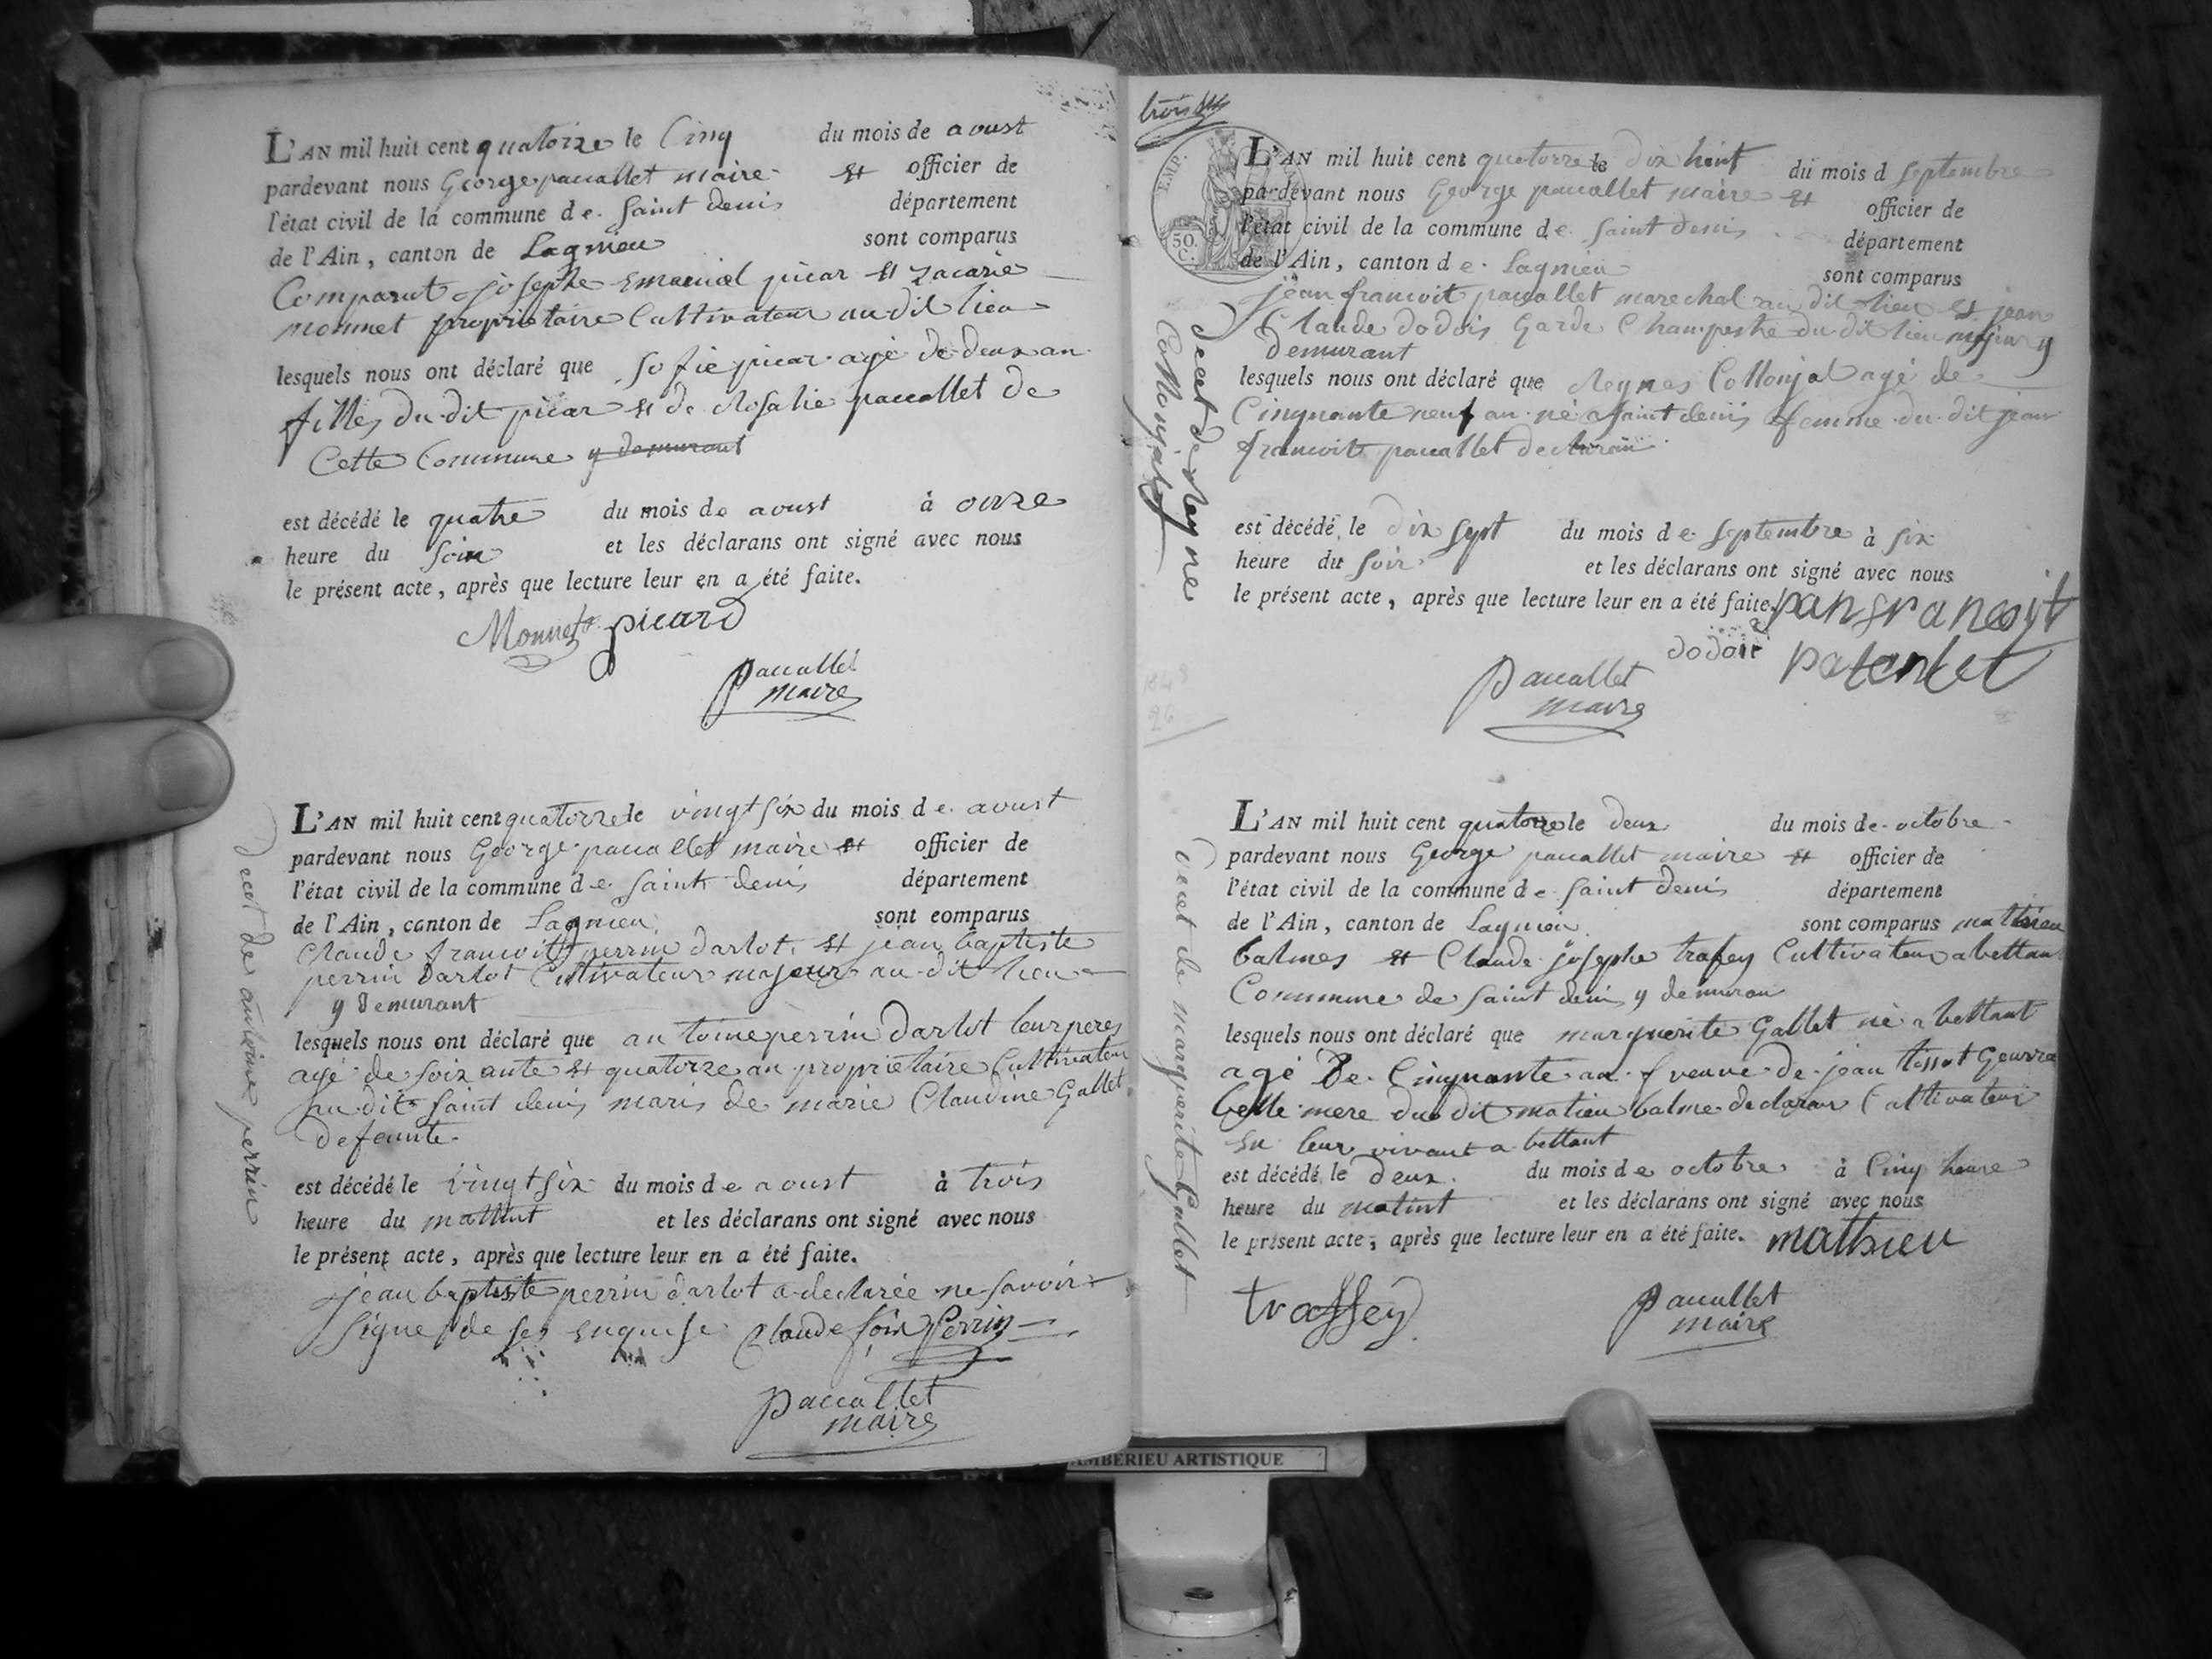 L'AN mil huit cent quatorze le Cinq du mois de aoust
pardevant nous George pacallet maire et officier de
l'état civil de la commune de Saint denis département
de l'Ain, canton de Lagnieu sont comparus
Comparut josephe Emanuel picar et zacarie
monnet propriétaire Cultivateur audit lieu
lesquels nous ont déclaré que sofie picar agé de deux an
filles du dit picar et de Rosalie pacallet de
Cette Commune y demurant
est décédé le quatre du mois de aoust à onze
heure du soir et les déclarans ont signé avec nous
le présent acte, après que lecture leur en a été faite.
Monnet picard
pacallet
maire
Decet de antoine perrin
L'AN mil huit cent quatorze le vingt six du mois de aoust
pardevant nous George pacallet maire et officier de
l'état civil de la commune de Saint denis département
de l'Ain, canton de Lagnieu sont comparus
Claude francoit perrin darlot et jean baptiste
perrin darlot Cultivateur majeur au dit lieu
y demurant
lesquels nous ont déclaré que antoine perrin darlot leur peres
agé de soixante et quatorze an propriétaire Cultivateur
au dit saint denis maris de marie Claudine Gallet
defeunte
est décédé le vingt six du mois de aoust à trois
heure du matint et les déclarans ont signé avec nous
le présent acte, après que lecture leur en a été faite.
jean baptiste perrin darlot a declarée ne savoir
signe de ses enquise Claude fois Perrin
pacallet
maire
trois
EMP.
50.
C.
Decet de Reyne
Collonjat
L'AN mil huit cent quatorze le dix huit du mois d septembre
pardevant nous George pacallet maire et officier de
l'état civil de la commune de Saint denis département
de l'Ain, canton de Lagnieu sont comparus
jean francoit pacallet marechal au dit lieu et jean
Claude dodois Garde Champestre du dit lieu majeur y
demurant
lesquels nous ont déclaré que Reynes Collonjat agé de
Cinquante neuf an né a saint denis femme du dit jean
francoit pacallet declaran
est décédé le dix sept du mois de septembre à six
heure du soir et les déclarans ont signé avec nous
le présent acte, après que lecture leur en a été faite.
dodoir
pacallet
maire
Decet de marguerite Gallet
L'AN mil huit cent quatorze le deux du mois de octobre
pardevant nous George pacallet maire et officier de
l'état civil de la commune de Saint denis département
de l'Ain, canton de Lagnieu sont comparus mathieu
balmes et Claude josephe trafey Cultivateur a bettant
Commune de saint denis y demuran
lesquels nous ont déclaré que marguerite Gallet né a bettant
agé de Cinquante an veuve de jean tissot
belle mere du dit matieu balme declaran Cultivateur
en leur vivant a bettant
est décédé le deux du mois de octobre à Cinq heure
heure du matint et les déclarans ont signé avec nous
le présent acte, après que lecture leur en a été faite. mathieu
traffey
pacallet
maire
AMBERIEU ARTISTIQUE